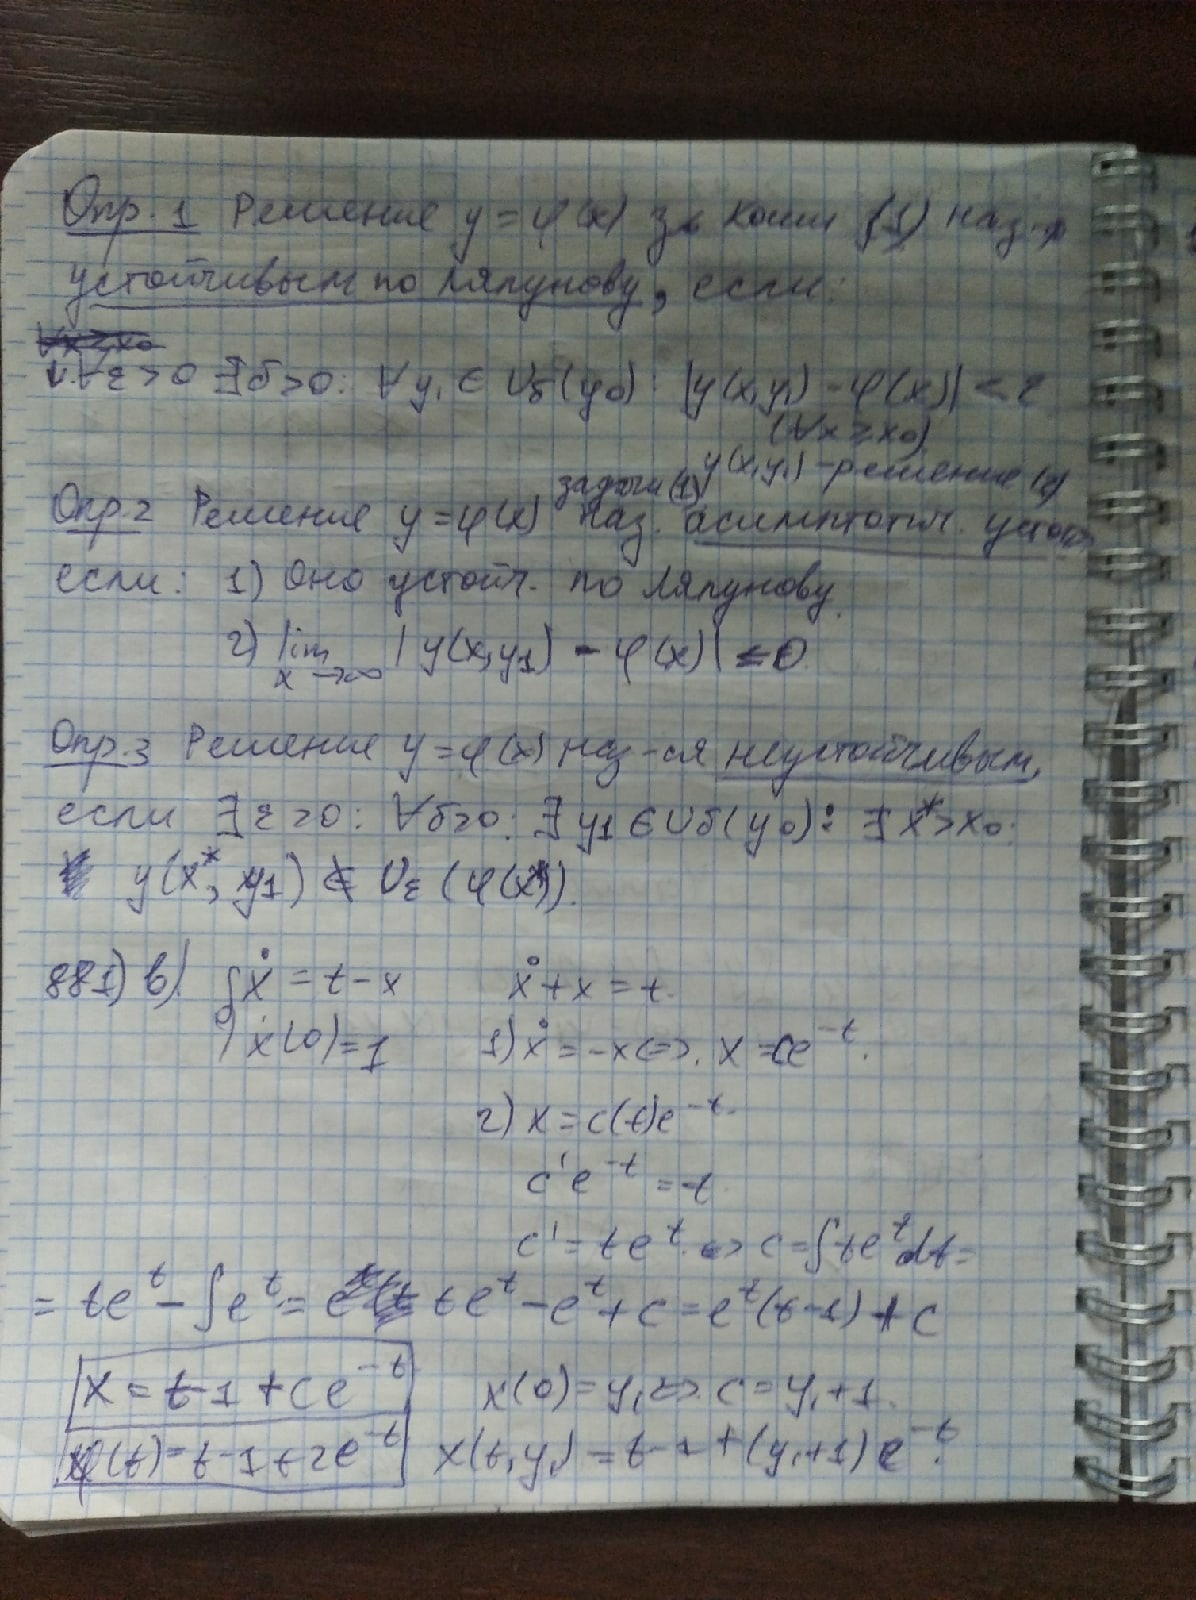 Опр. 1 Решение y = φ(x) з. Коши (1) наз-ся
устойчивым по Ляпунову, если:
∀ε > 0 ∃δ > 0: ∀y₁ ∈ Uδ(y₀): |y(x,y₁) - φ(x)| < ε
(∀x ≥ x₀)
y(x,y₁) - решение
Опр.2 Решение y = φ(x) задачи (1) наз. асимптотич. устойч,
если: 1) Оно устойч. по Ляпунову.
2) lim x→∞ |y(x,y1) - φ(x)| = 0
Опр.3 Решение y = φ(x) наз-ся неустойчивым,
если ∃ε>0: ∀δ>0: ∃y1 ∈ Uδ(y₀): ∃x*>x₀:
y(x*, y1) ∉ Uε(φ(x*)).
881) в) { ẋ = t - x   ẋ + x = t.
x(0) = 1   1) ẋ = -x ⇔ x = ce^{-t}.
2) x = c(t)e^{-t}.
c'e^{-t} = t
c' = te^t ⇔ c = ∫te^t dt =
= te^t - ∫e^t = te^t - e^t + c = e^t(t-1) + c
x = t-1 + ce^{-t}   x(0) = y₁ ⇔ c = y₁+1.
φ(t) = t-1+2e^{-t}   x(t,y₁) = t-1+(y₁+1)e^{-t}.